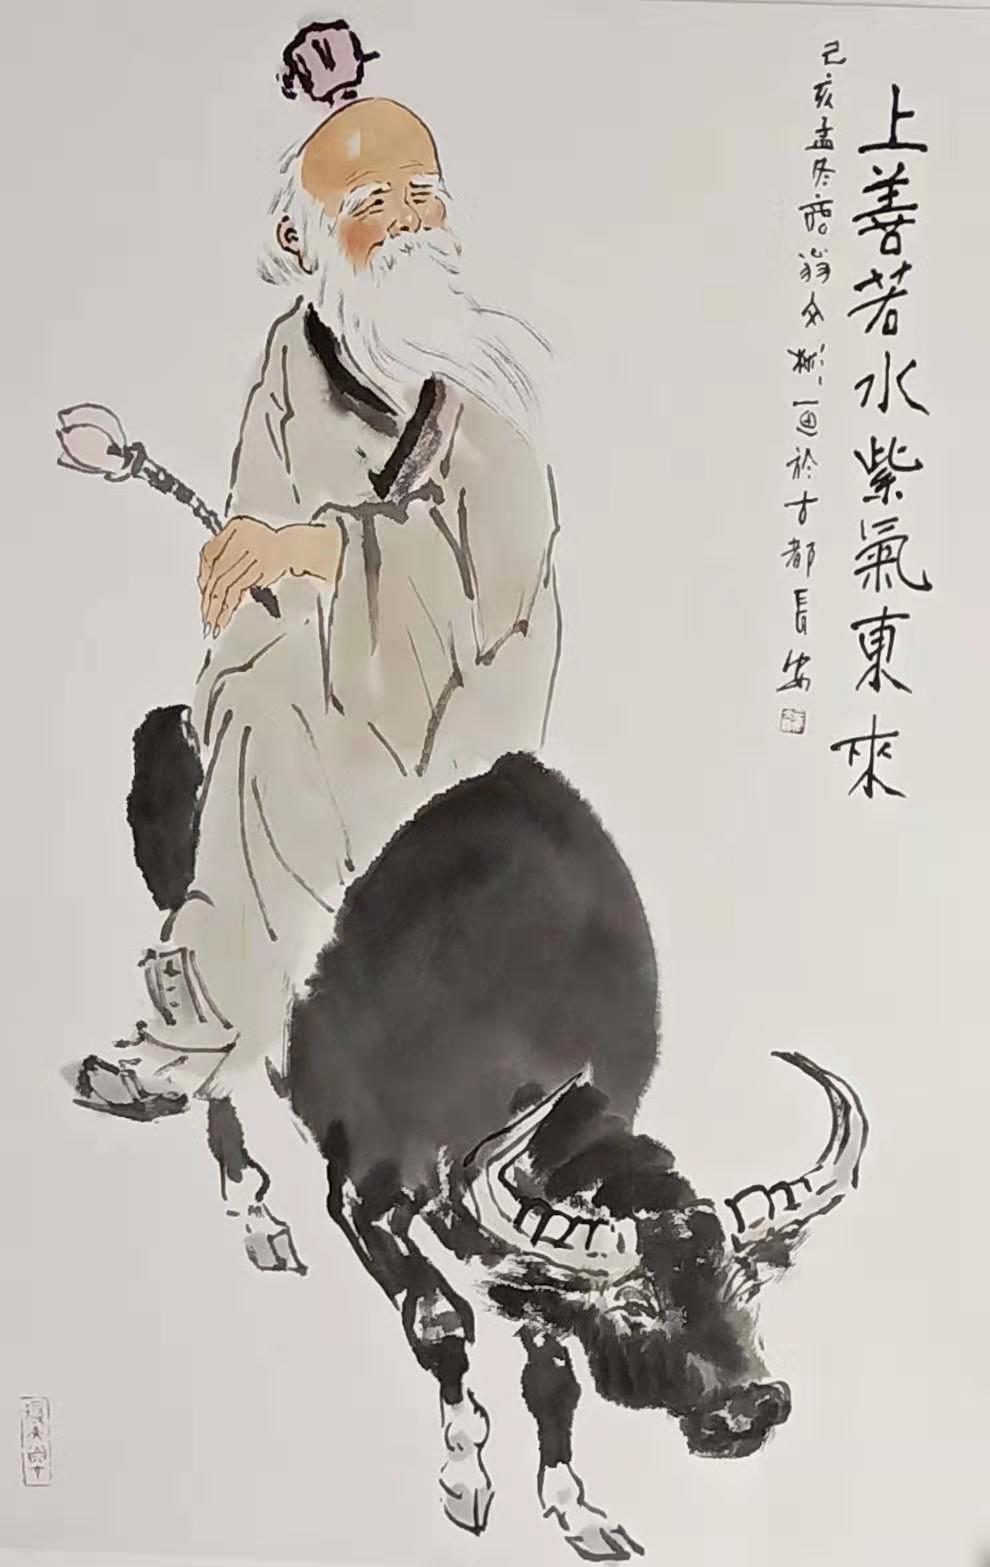 上善若水紫氣東來
己亥孟冬語翁文彬一画於古都長安